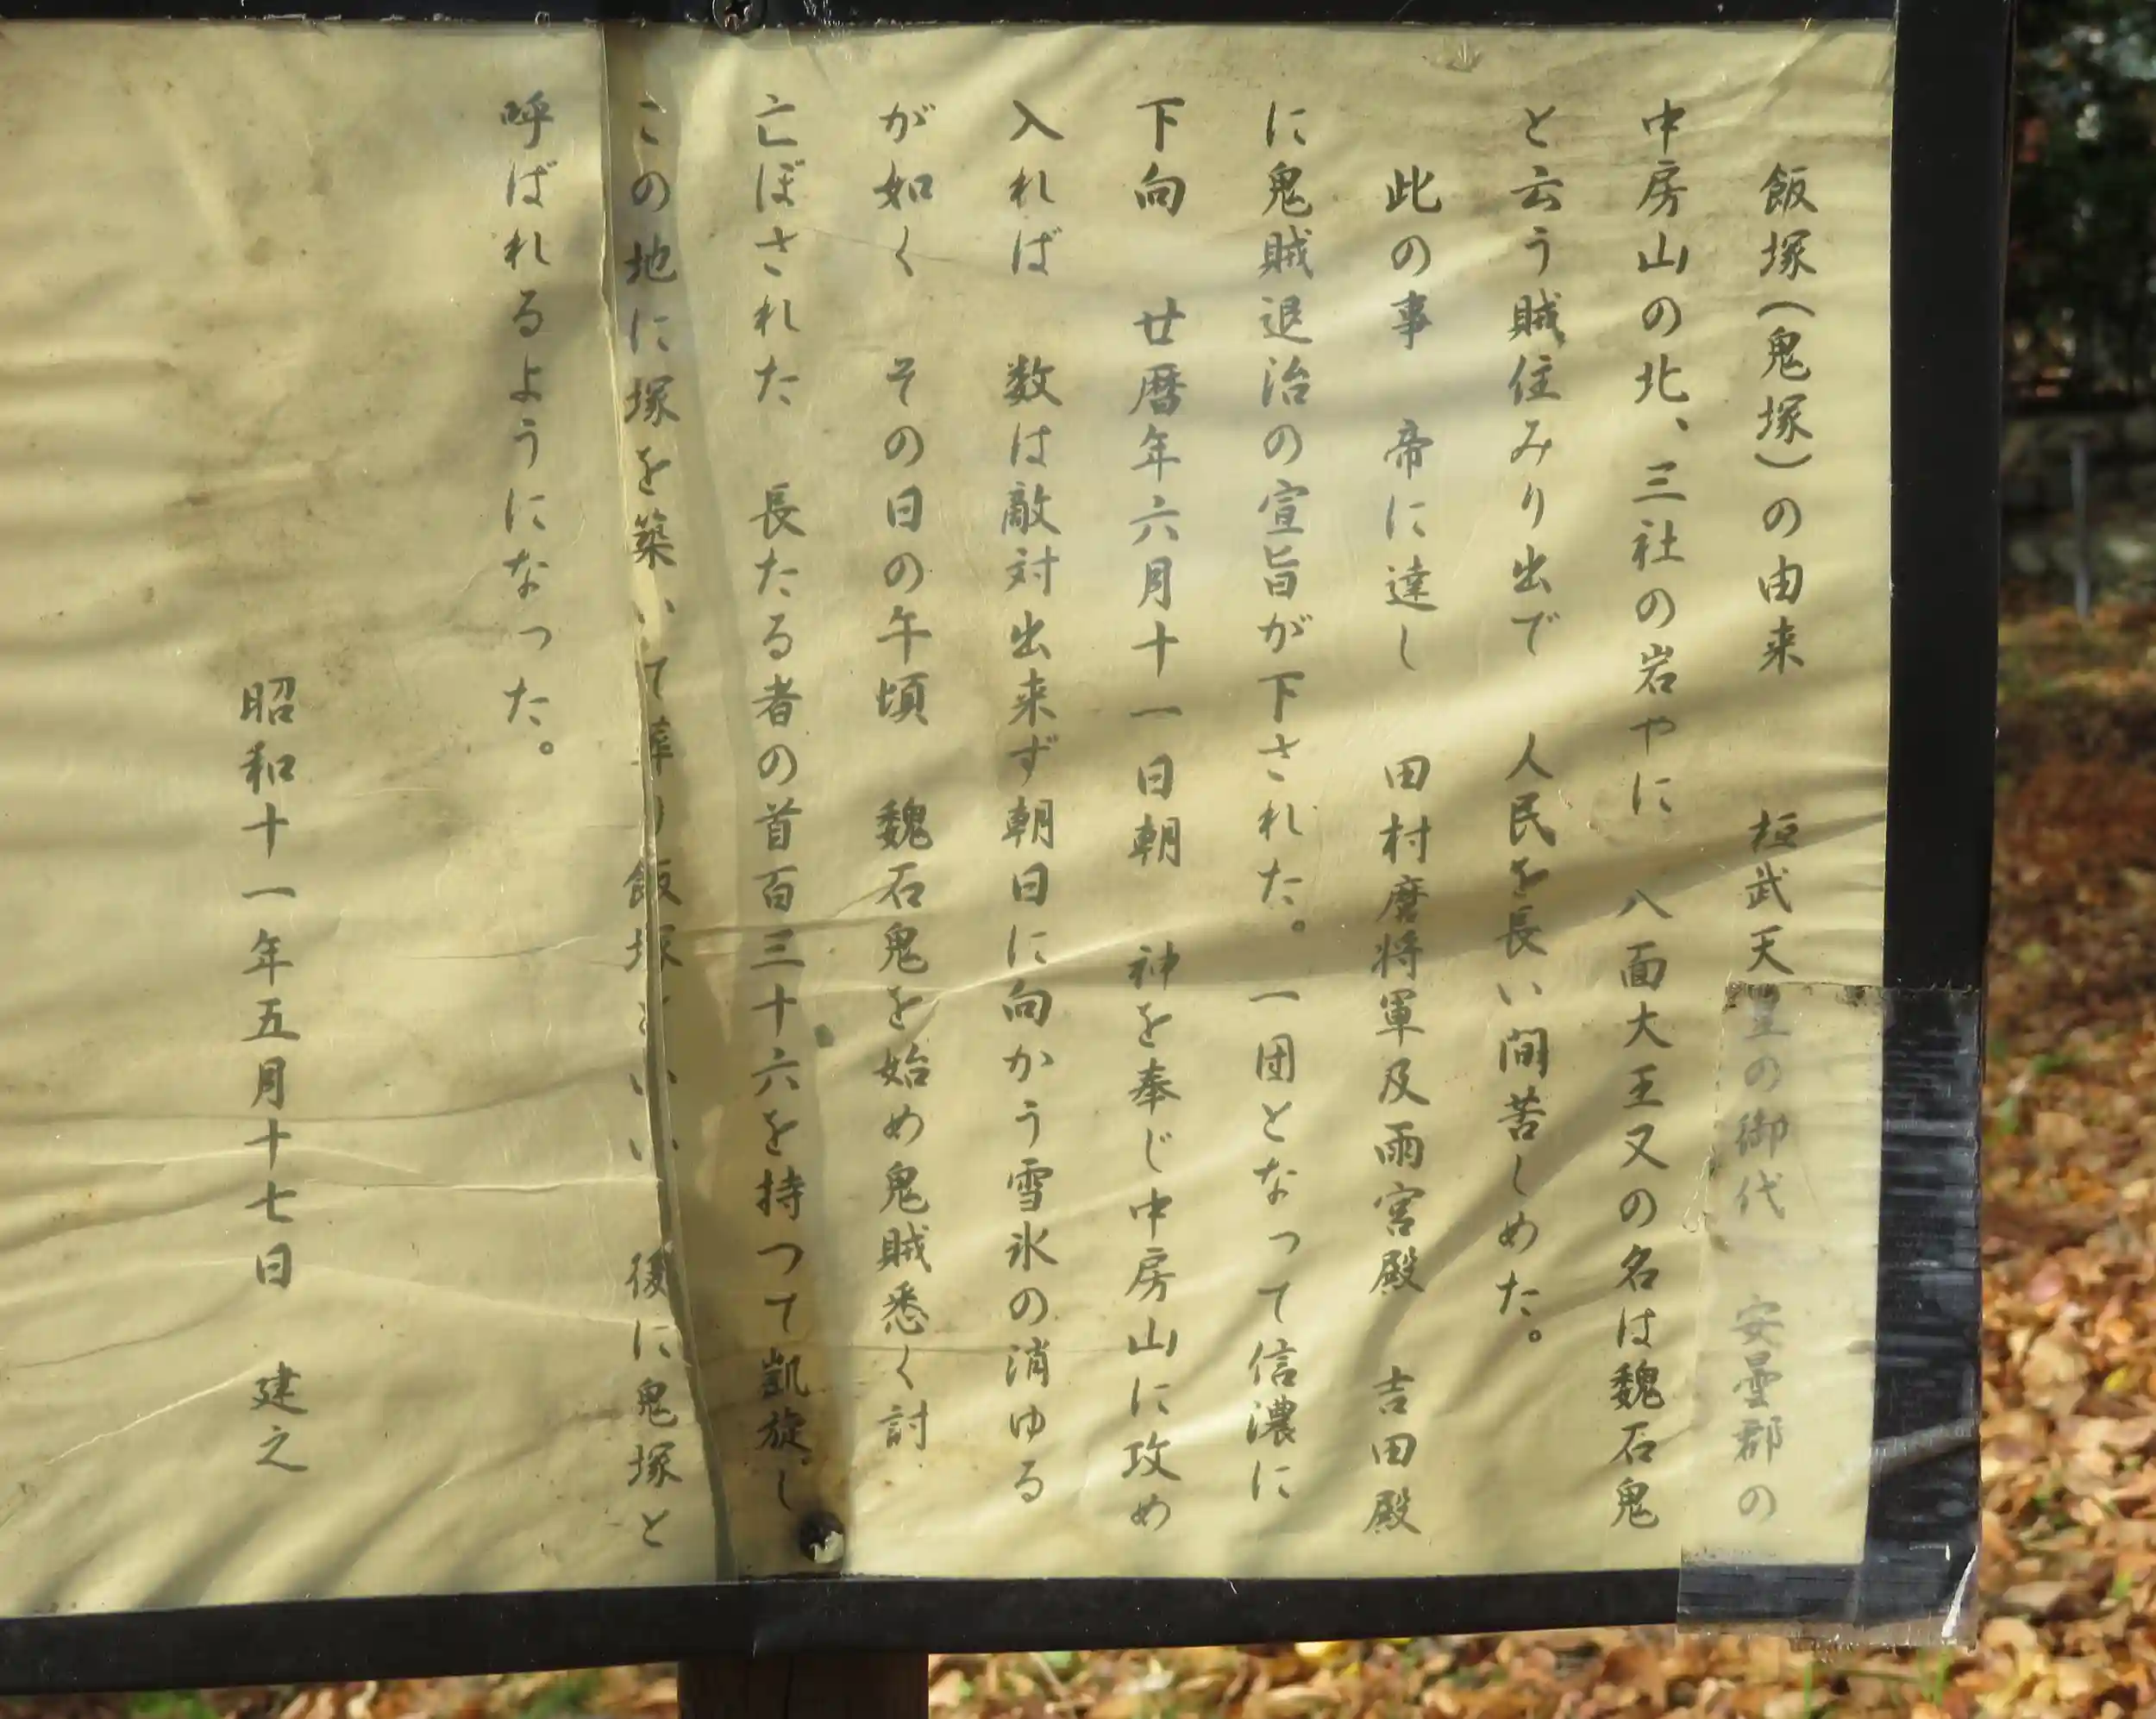 飯塚(鬼塚)の由来　桓武天皇の御代　安曇郡の
中房山の北、三社の岩やに　八面大王又の名は魏石鬼
と云う賊住みり出で　人民を長い間苦しめた。
此の事　帝に達し　田村麿将軍及雨宮殿　吉田殿
に鬼賊退治の宣旨が下された。一団となって信濃に
下向　廿暦年六月十一日朝　神を奉じ中房山に攻め
入れば　数は敵対出来ず朝日に向かう雪氷の消ゆる
が如く　その日の午頃　魏石鬼を始め鬼賊悉く討
亡ぼされた　長たる者の首百三十六を持つて凱旋し
この地に塚を築いて葬り飯塚といい　後に鬼塚と
呼ばれるようになった。
昭和十一年五月十七日　建之